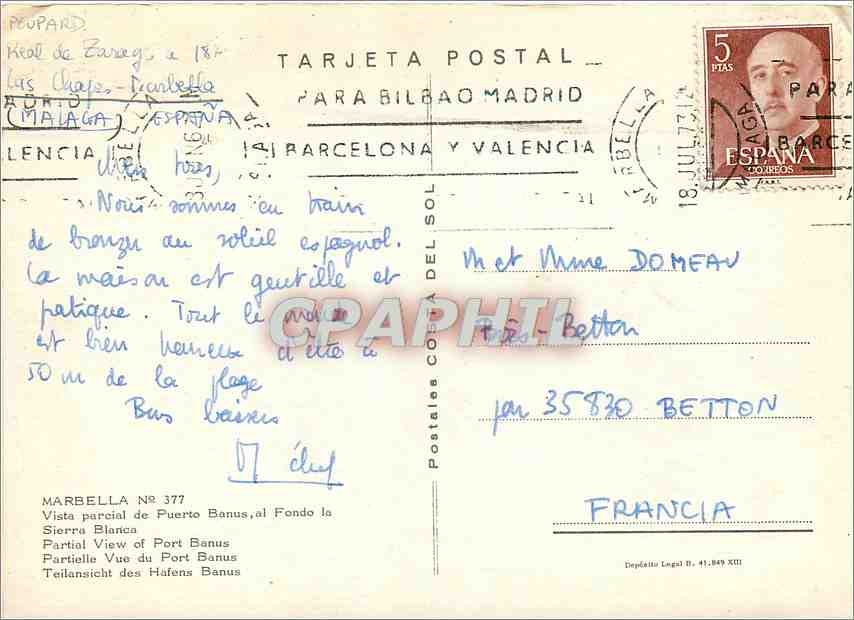 POUPARD
Real de Zarag
Las Chapas-Marbella
(MALAGA) ESPAÑA
TARJETA POSTAL
PARA BILBAO MADRID
BARCELONA Y VALENCIA
ADRID
LENCIA
MARBELLA
18.JUL73
MALAGA
PARA
BARCE
5
PTAS
ESPAÑA
CORREOS
Nous sommes en train
de bronzer au soleil espagnol.
La maison est gentille et
patique. Tout le monde
est bien heureux d'être à
50 m de la plage
Bons baisers
M chef
Postales COSTA DEL SOL
M et Mme DOMEAU
Betton
par 35830 BETTON
FRANCIA
CPAPHIL
MARBELLA Nº 377
Vista parcial de Puerto Banus, al Fondo la
Sierra Blanca
Partial View of Port Banus
Partielle Vue du Port Banus
Teilansicht des Hafens Banus
Depósito Legal B. 41.849 XIII